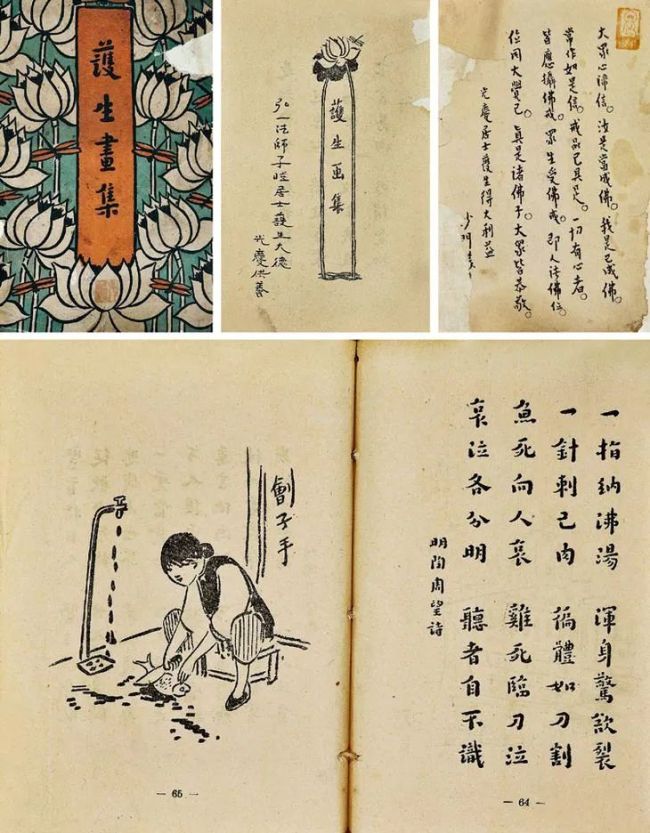 護生畫集
護生画集
弘一法師子愷居士護生大德
光慶供養
大眾心諦信。汝是當成佛。我是已成佛。
常作如是信。戒品已具足。一切有心者。
皆應攝佛戒。眾生受佛戒。即入諸佛位。
位同大覺已。真是諸佛子。大眾皆恭敬。
光慶居士護生得大利益
一指納沸湯 渾身驚欲裂
一針刺己肉 徧體如刀割
魚死向人哀 雞死臨刀泣
哀泣各分明 聽者自不識
明陶周望詩
— 64 —
劊子手
— 65 —